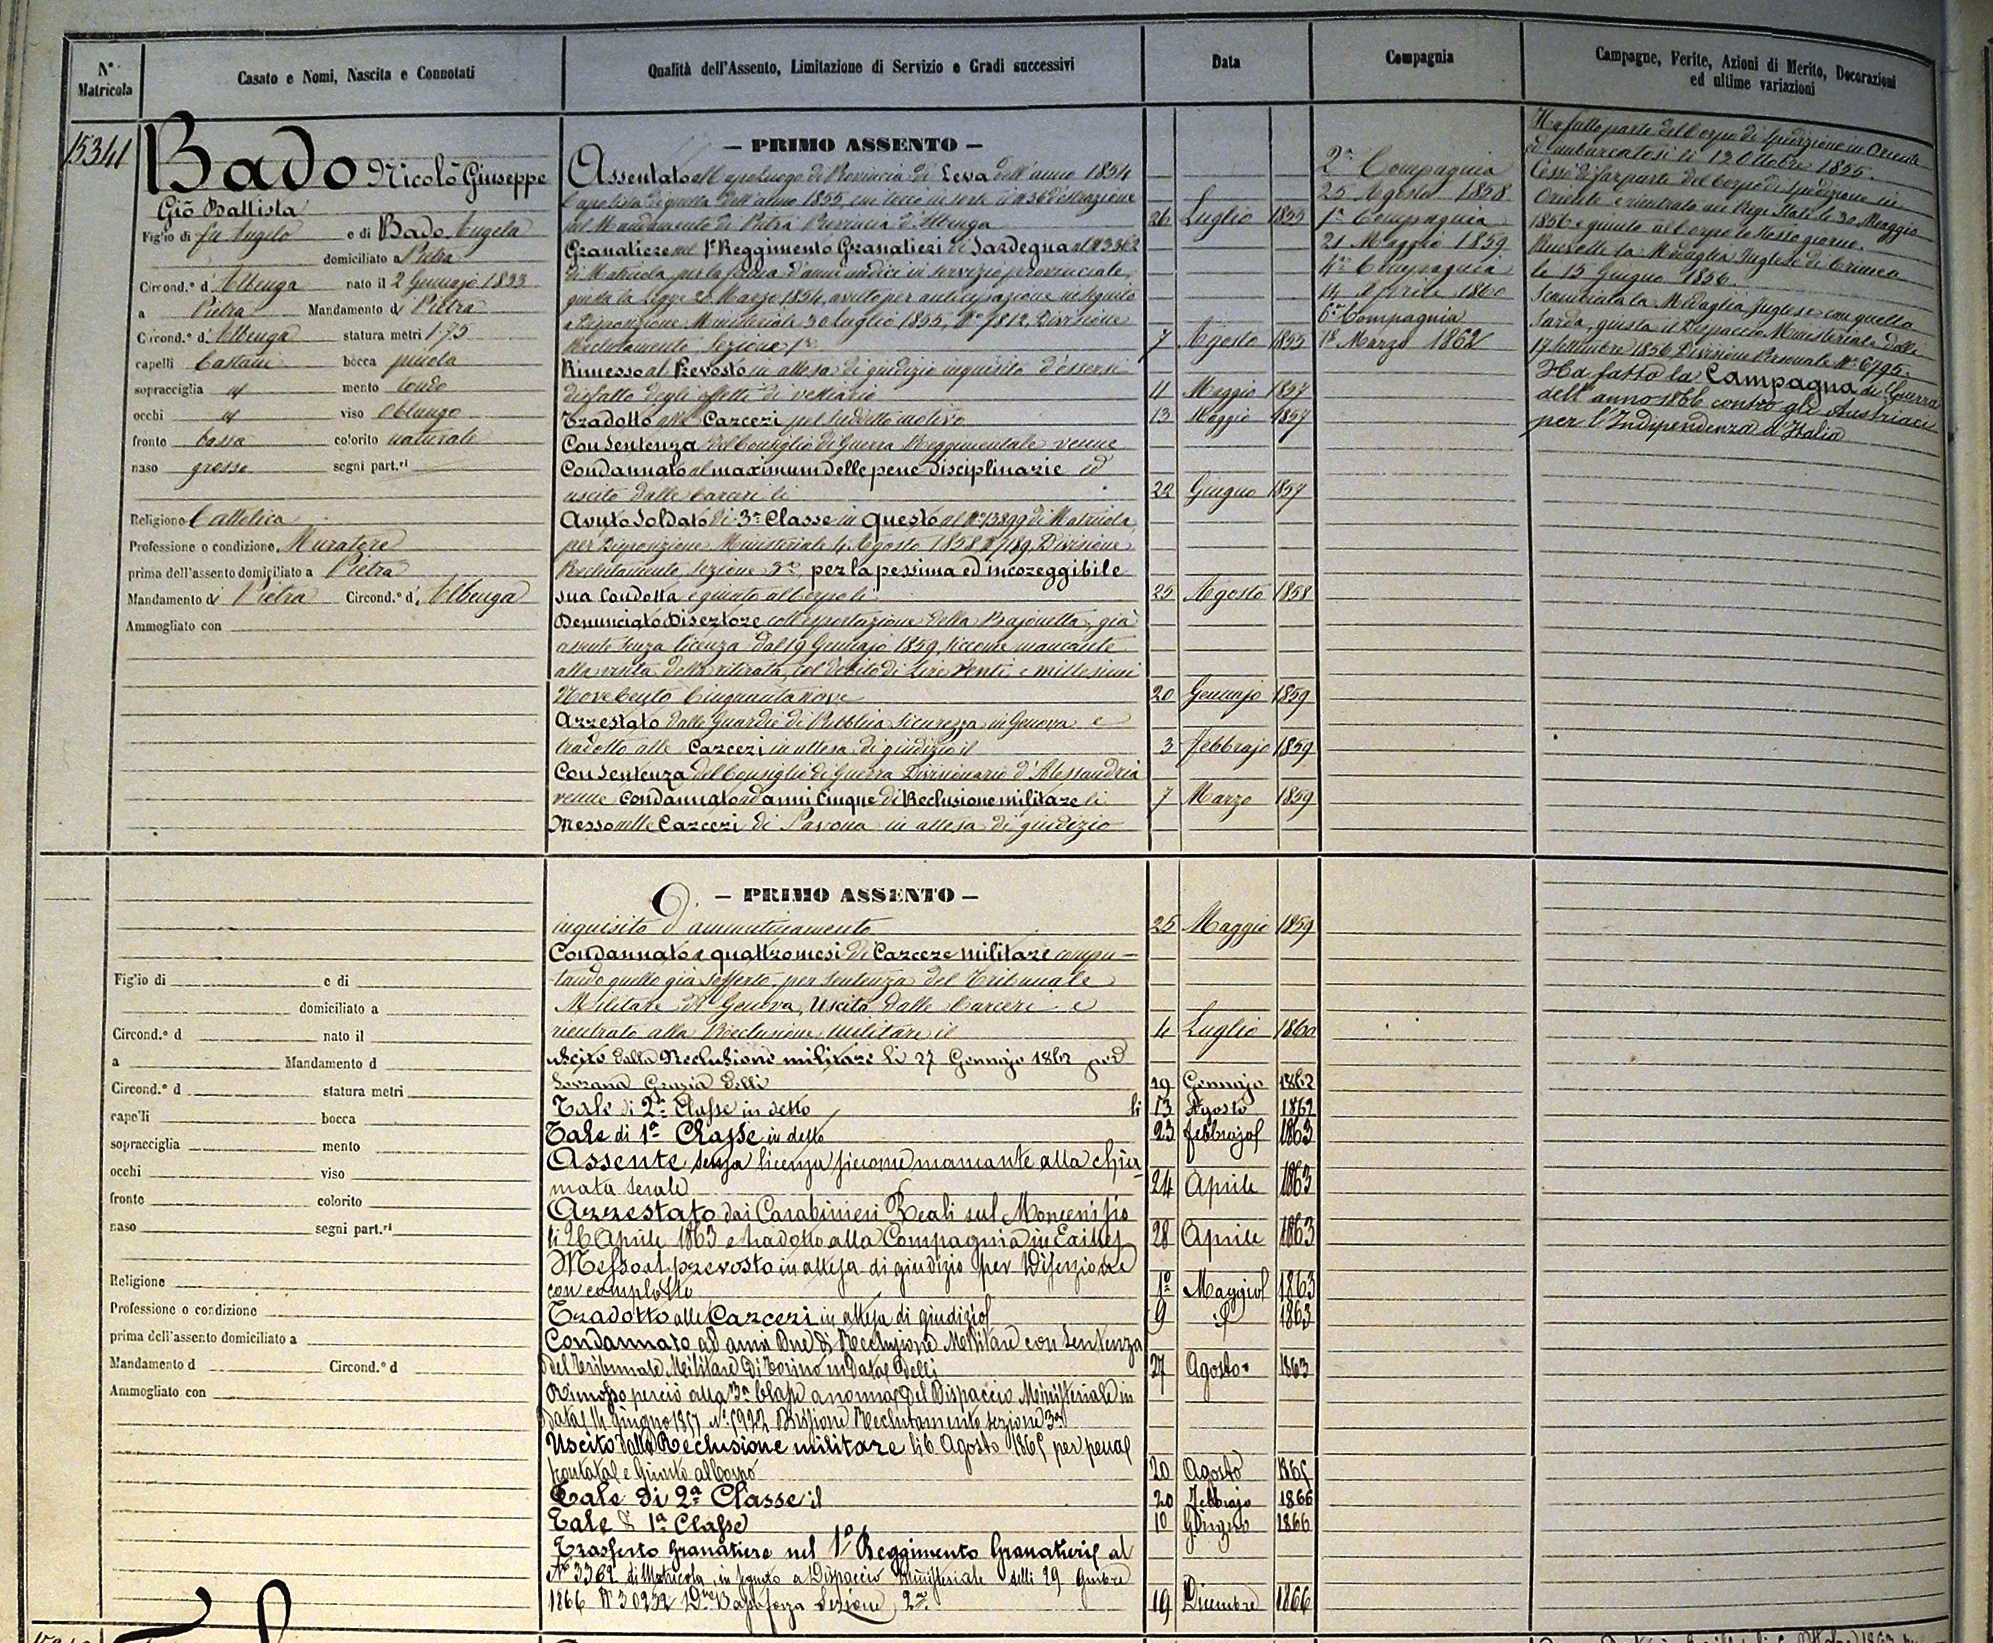 N° Matricola
Casato e Nomi, Nascita e Connotati
Qualità dell'Assento, Limitazione di Servizio e Gradi successivi
Data
Compagnia
Campagne, Ferite, Azioni di Merito, Decorazioni
ed ultime variazioni
15341
Bado Nicolò Giuseppe
Giō Battista
Figlio di fu Angelo e di Bado Angela
domiciliato a Pietra
Circond.° d' Albenga nato il 2 Gennajo 1833
a Pietra Mandamento di Pietra
Circond.° d' Albenga statura metri 1.75
capelli Castani bocca piccola
sopracciglia id mento tondo
occhi id viso oblungo
fronte bassa colorito naturale
naso grosso segni part.ri
Religione Cattolica
Professione o condizione Muratore
prima dell'assento domiciliato a Pietra
Mandamento di Pietra Circond.° d' Albenga
Ammogliato con
— PRIMO ASSENTO —
Assentato all capoluogo di Provincia di Leva dell'anno 1854
Capolista di quella dell'anno 1855, cui tocco in sorte il N° 36 d'estrazione
pel Mandamento di Pietra Provincia d'Albenga 26 Luglio 1855
Granatiere nel 1° Reggimento Granatieri di Sardegna al N° 3362
di Matricola per la ferma d'anni undici in servizio provinciale,
giusta la Legge 20 Marzo 1854, avuto per anticipazione in seguito
a Disposizione Ministeriale 30 Luglio 1855, N° 7812, Divisione
Reclutamento Sezione 1ª 7 Agosto 1855
Rimesso al Prevosto in attesa di giudizio inquisito d'essersi
disfatto degli effetti di vestiario 11 Maggio 1857
Tradotto alle Carceri pel suddetto motivo 13 Maggio 1857
Con Sentenza del Consiglio di Guerra Reggimentale venne
Condannato al maximum delle pene disciplinarie ed
uscito dalle Carceri li 22 Giugno 1857
Avuto Soldato di 3ª Classe in Questo al N° 13899 di Matricola,
per Disposizione Ministeriale 4 Agosto 1858 N° 7189, Divisione
Reclutamento Sezione 3ª, per la pessima ed incoreggibile
sua Condotta e giunto al Corpo li 25 Agosto 1858
Denunciato Disertore coll'esportazione della Bajonetta, già
assente senza licenza dal 19 Gennajo 1859, siccome mancante
alla visita della ritirata, col debito di Lire Venti e millesimi
Novecento Cinquantanove 20 Gennajo 1859
Arrestato dalle Guardie di Pubblica Sicurezza in Genova e
tradotto alle Carceri in attesa di giudizio il 3 Febbrajo 1859
Con Sentenza del Consiglio di Guerra Divisionario d'Alessandria
venne Condannato ad anni Cinque di Reclusione militare li 7 Marzo 1859
Messo nelle Carceri di Savona in attesa di giudizio
2ª Compagnia
25 Agosto 1858
1ª Compagnia
21 Maggio 1859
4ª Compagnia
14 Aprile 1860
6ª Compagnia
1° Marzo 1862
Ha fatto parte del Corpo di Spedizione in Oriente
ed imbarcatosi li 12 Ottobre 1855.
Cessò di far parte del Corpo di Spedizione in
Oriente e rientrato nei Regi Stati le 30 Maggio
1856 e giunto al Corpo lo stesso giorno.
Ricevette la Medaglia Inglese di Crimea
le 15 Giugno 1856.
Scambiata la Medaglia Inglese con quella
Sarda, giusta il Dispaccio Ministeriale delli
17 Settembre 1856 Divisione Personale N° 6795.
Ha fatto la Campagna di Guerra
dell'anno 1866 contro gli Austriaci
per l'Indipendenza d'Italia
— PRIMO ASSENTO —
inquisito d'ammutinamento 25 Maggio 1859
Condannato a quattro mesi di Carcere militare compu-
tando quello già sofferto, per Sentenza del Tribunale
Militare di Genova, Uscito dalle Carceri e
rientrato alla Reclusione militare il 4 Luglio 1860
Uscito dalla Reclusione militare li 27 Gennajo 1862 per
Sovrana Grazia delli 19 Gennajo 1862
Tale di 2ª Classe in detto li 13 Agosto 1862
Tale di 1ª Classe in detto 23 Febbrajo 1863
Assente senza licenza siccome mancante alla chia-
mata serale 24 Aprile 1863
Arrestato dai Carabinieri Reali sul Moncenisio
li 26 Aprile 1863 e tradotto alla Compagnia in Exilles 28 Aprile 1863
Messo al prevosto in attesa di giudizio per Diserzione
con complotto 1° Maggio 1863
Tradotto alle Carceri in attesa di giudizio 9 id 1863
Condannato ad anni Due di Reclusione Militare con Sentenza
del Tribunale Militare di Torino in data delli 27 Agosto 1863
Rimosso perciò alla 3ª Classe a norma del Dispaccio Ministeriale in
data 14 Giugno 1857 N° 5922 Divisione Reclutamento Sezione 3ª
Uscito dalla Reclusione militare li 6 Agosto 1865 per pena
scontata e Giunto al Corpo 20 Agosto 1865
Tale di 2ª Classe il 20 Febbrajo 1866
Tale di 1ª Classe 10 Giugno 1866
Trasferto Granatiere nel 1° Reggimento Granatieri al
N° 3362 di Matricola, in seguito a Dispaccio Ministeriale delli 29 9mbre
1866 N° 30232 Dne Bassa forza Sezione 2ª 19 Dicembre 1866
Figlio di e di
domiciliato a
Circond.° d nato il
a Mandamento d
Circond.° d statura metri
capelli bocca
sopracciglia mento
occhi viso
fronte colorito
naso segni part.ri
Religione
Professione o condizione
prima dell'assento domiciliato a
Mandamento d Circond.° d
Ammogliato con